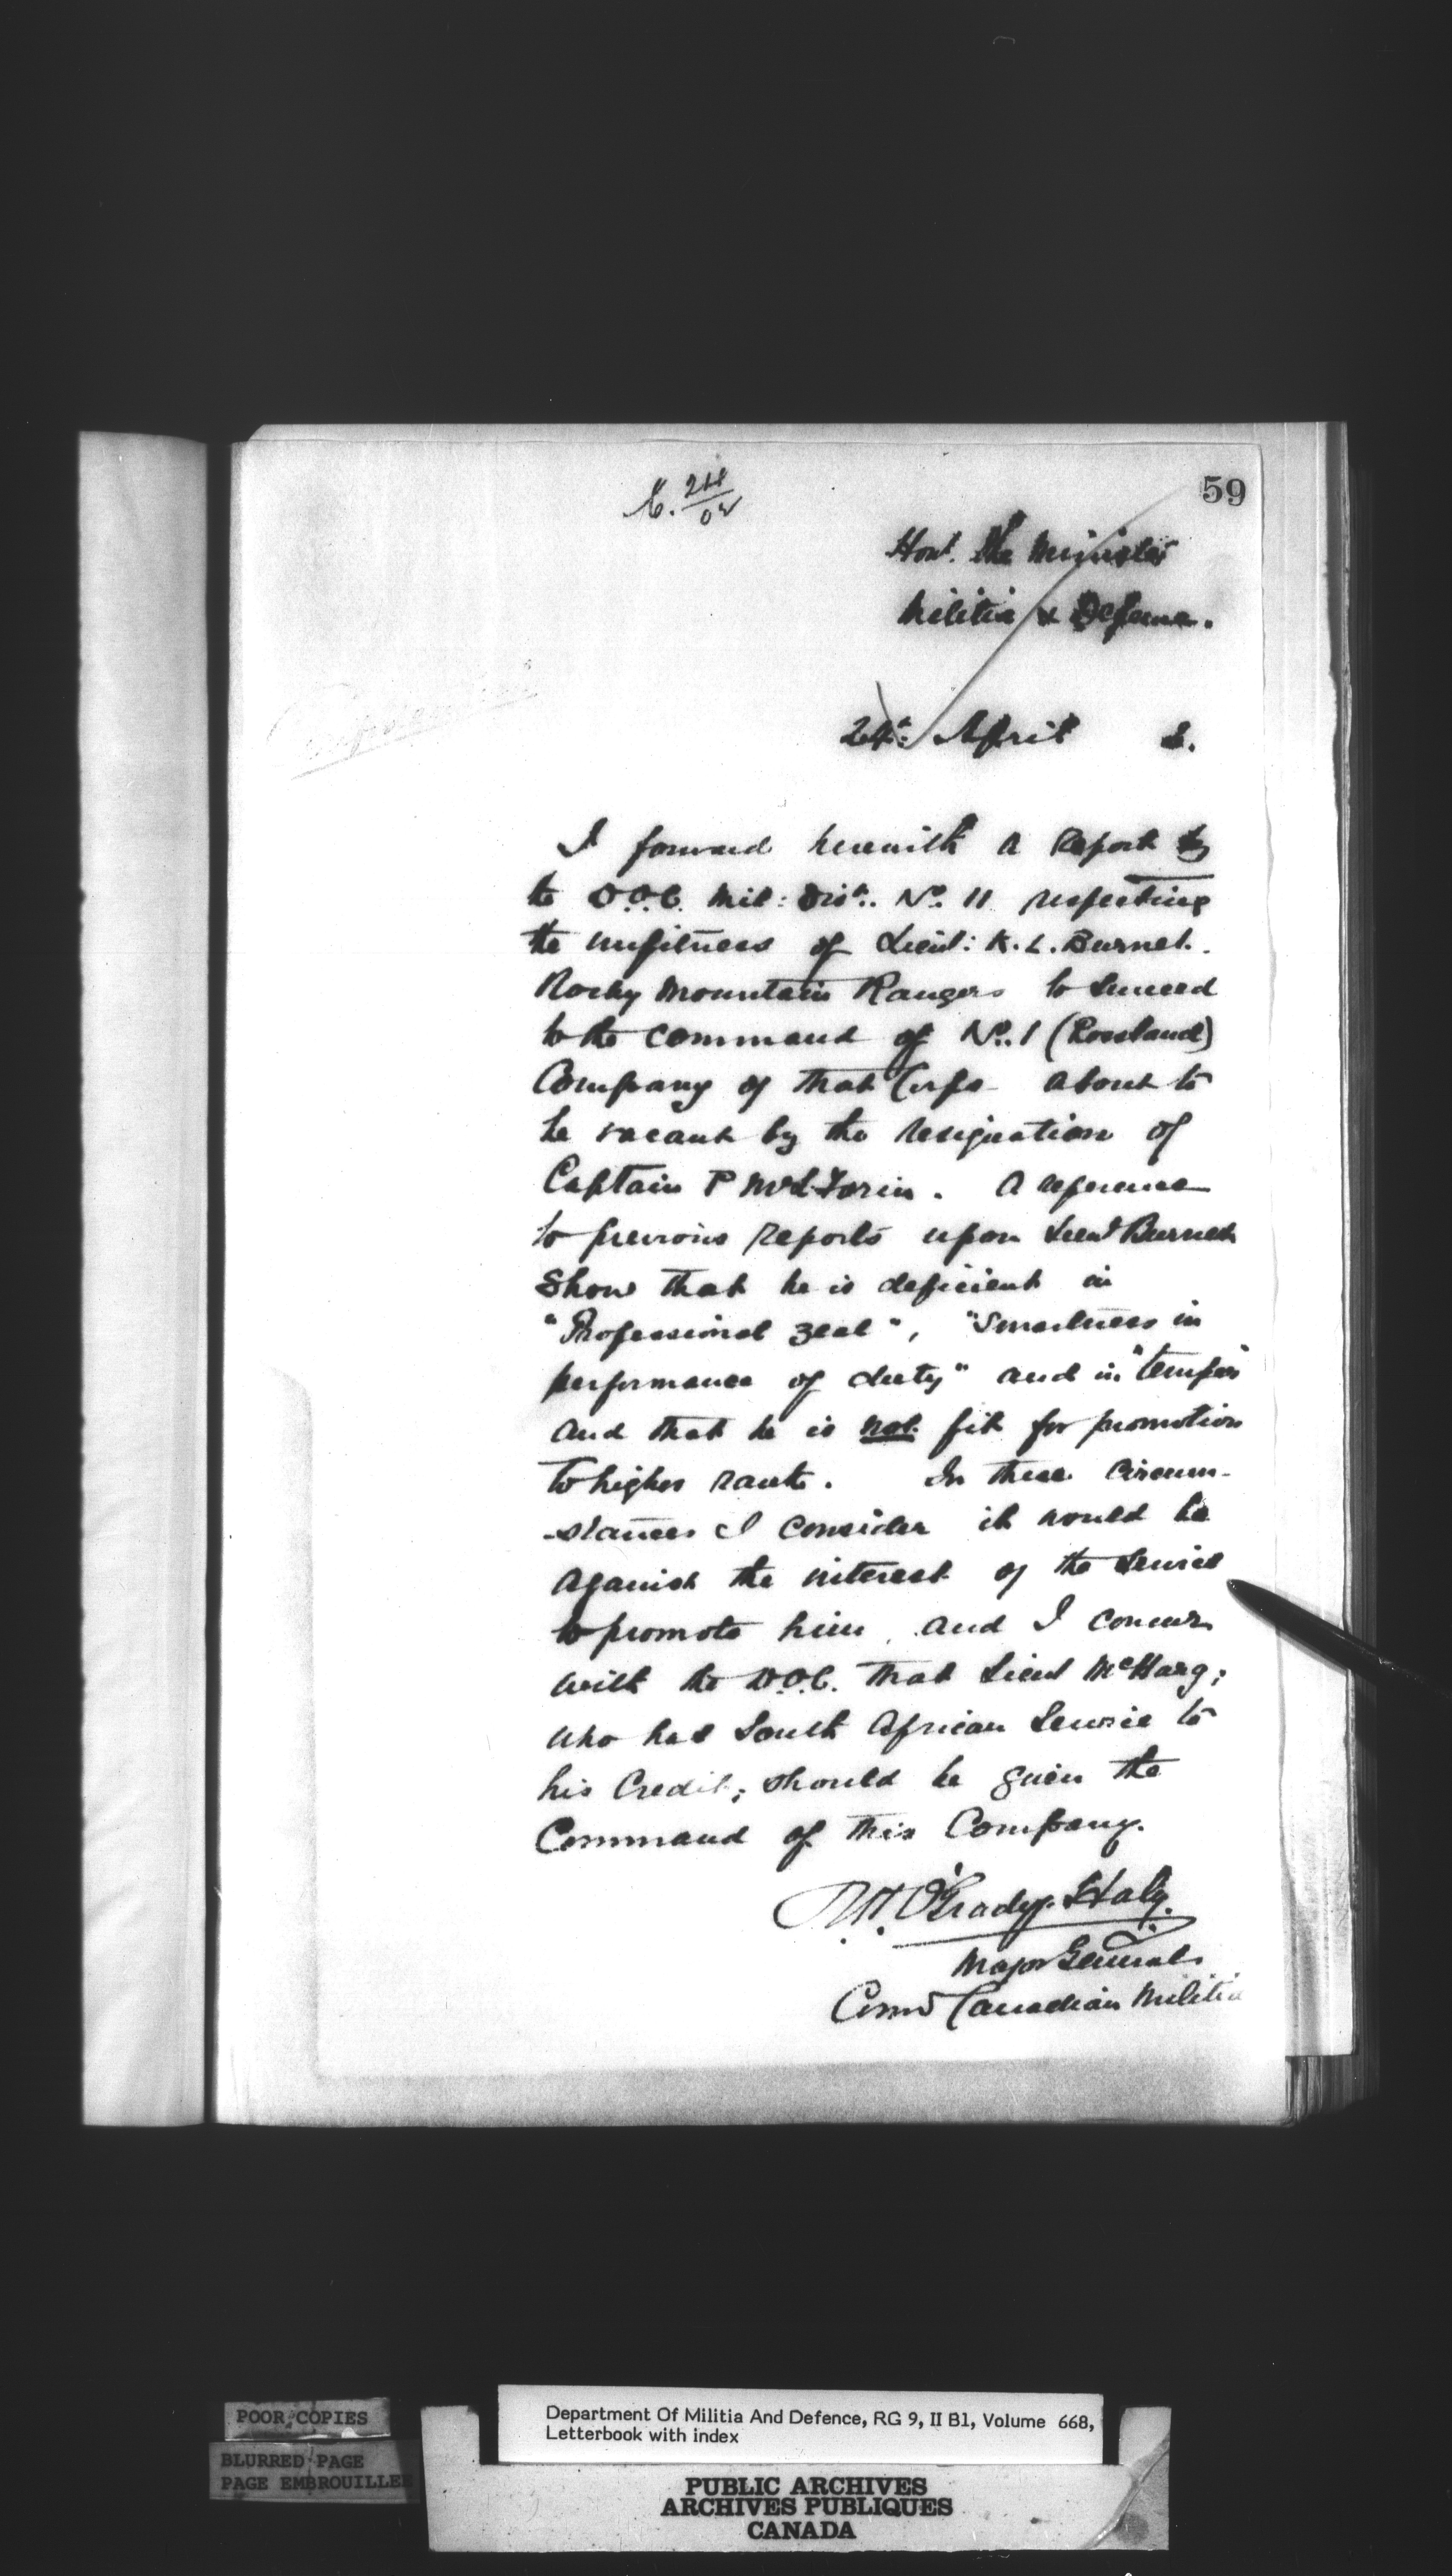 59
C. 214/02
Hon'. the Minister
Militia & Defence.
Confidential
24th. April 2.
I forward herewith a Report by
the D.O.C. Mil: Dist. No. 11 respecting
the unfitness of Lieut: K. L. Burnet.
Rocky Mountain Rangers to succeed
to the command of No. 1 (Rossland)
Company of that Corps about to
be vacant by the resignation of
Captain P McL Forin. A reference
to previous reports upon Lieut Burnet
show that he is deficient in
"Professional zeal", "Smartness in
performance of duty" and in "temper"
and that he is not fit for promotion
to higher rank. In these circum-
-stances I consider it would be
against the interest of the Service
to promote him, and I concur
with the D.O.C. that Lieut McHarg;
who has South African Service to
his Credit; should be given the
Command of this Company.
R H. O'Grady-Haly.
Major General
Comd Canadian Militia
POOR COPIES
BLURRED PAGE
PAGE EMBROUILLEE
Department Of Militia And Defence, RG 9, II B1, Volume 668,
Letterbook with index
PUBLIC ARCHIVES
ARCHIVES PUBLIQUES
CANADA